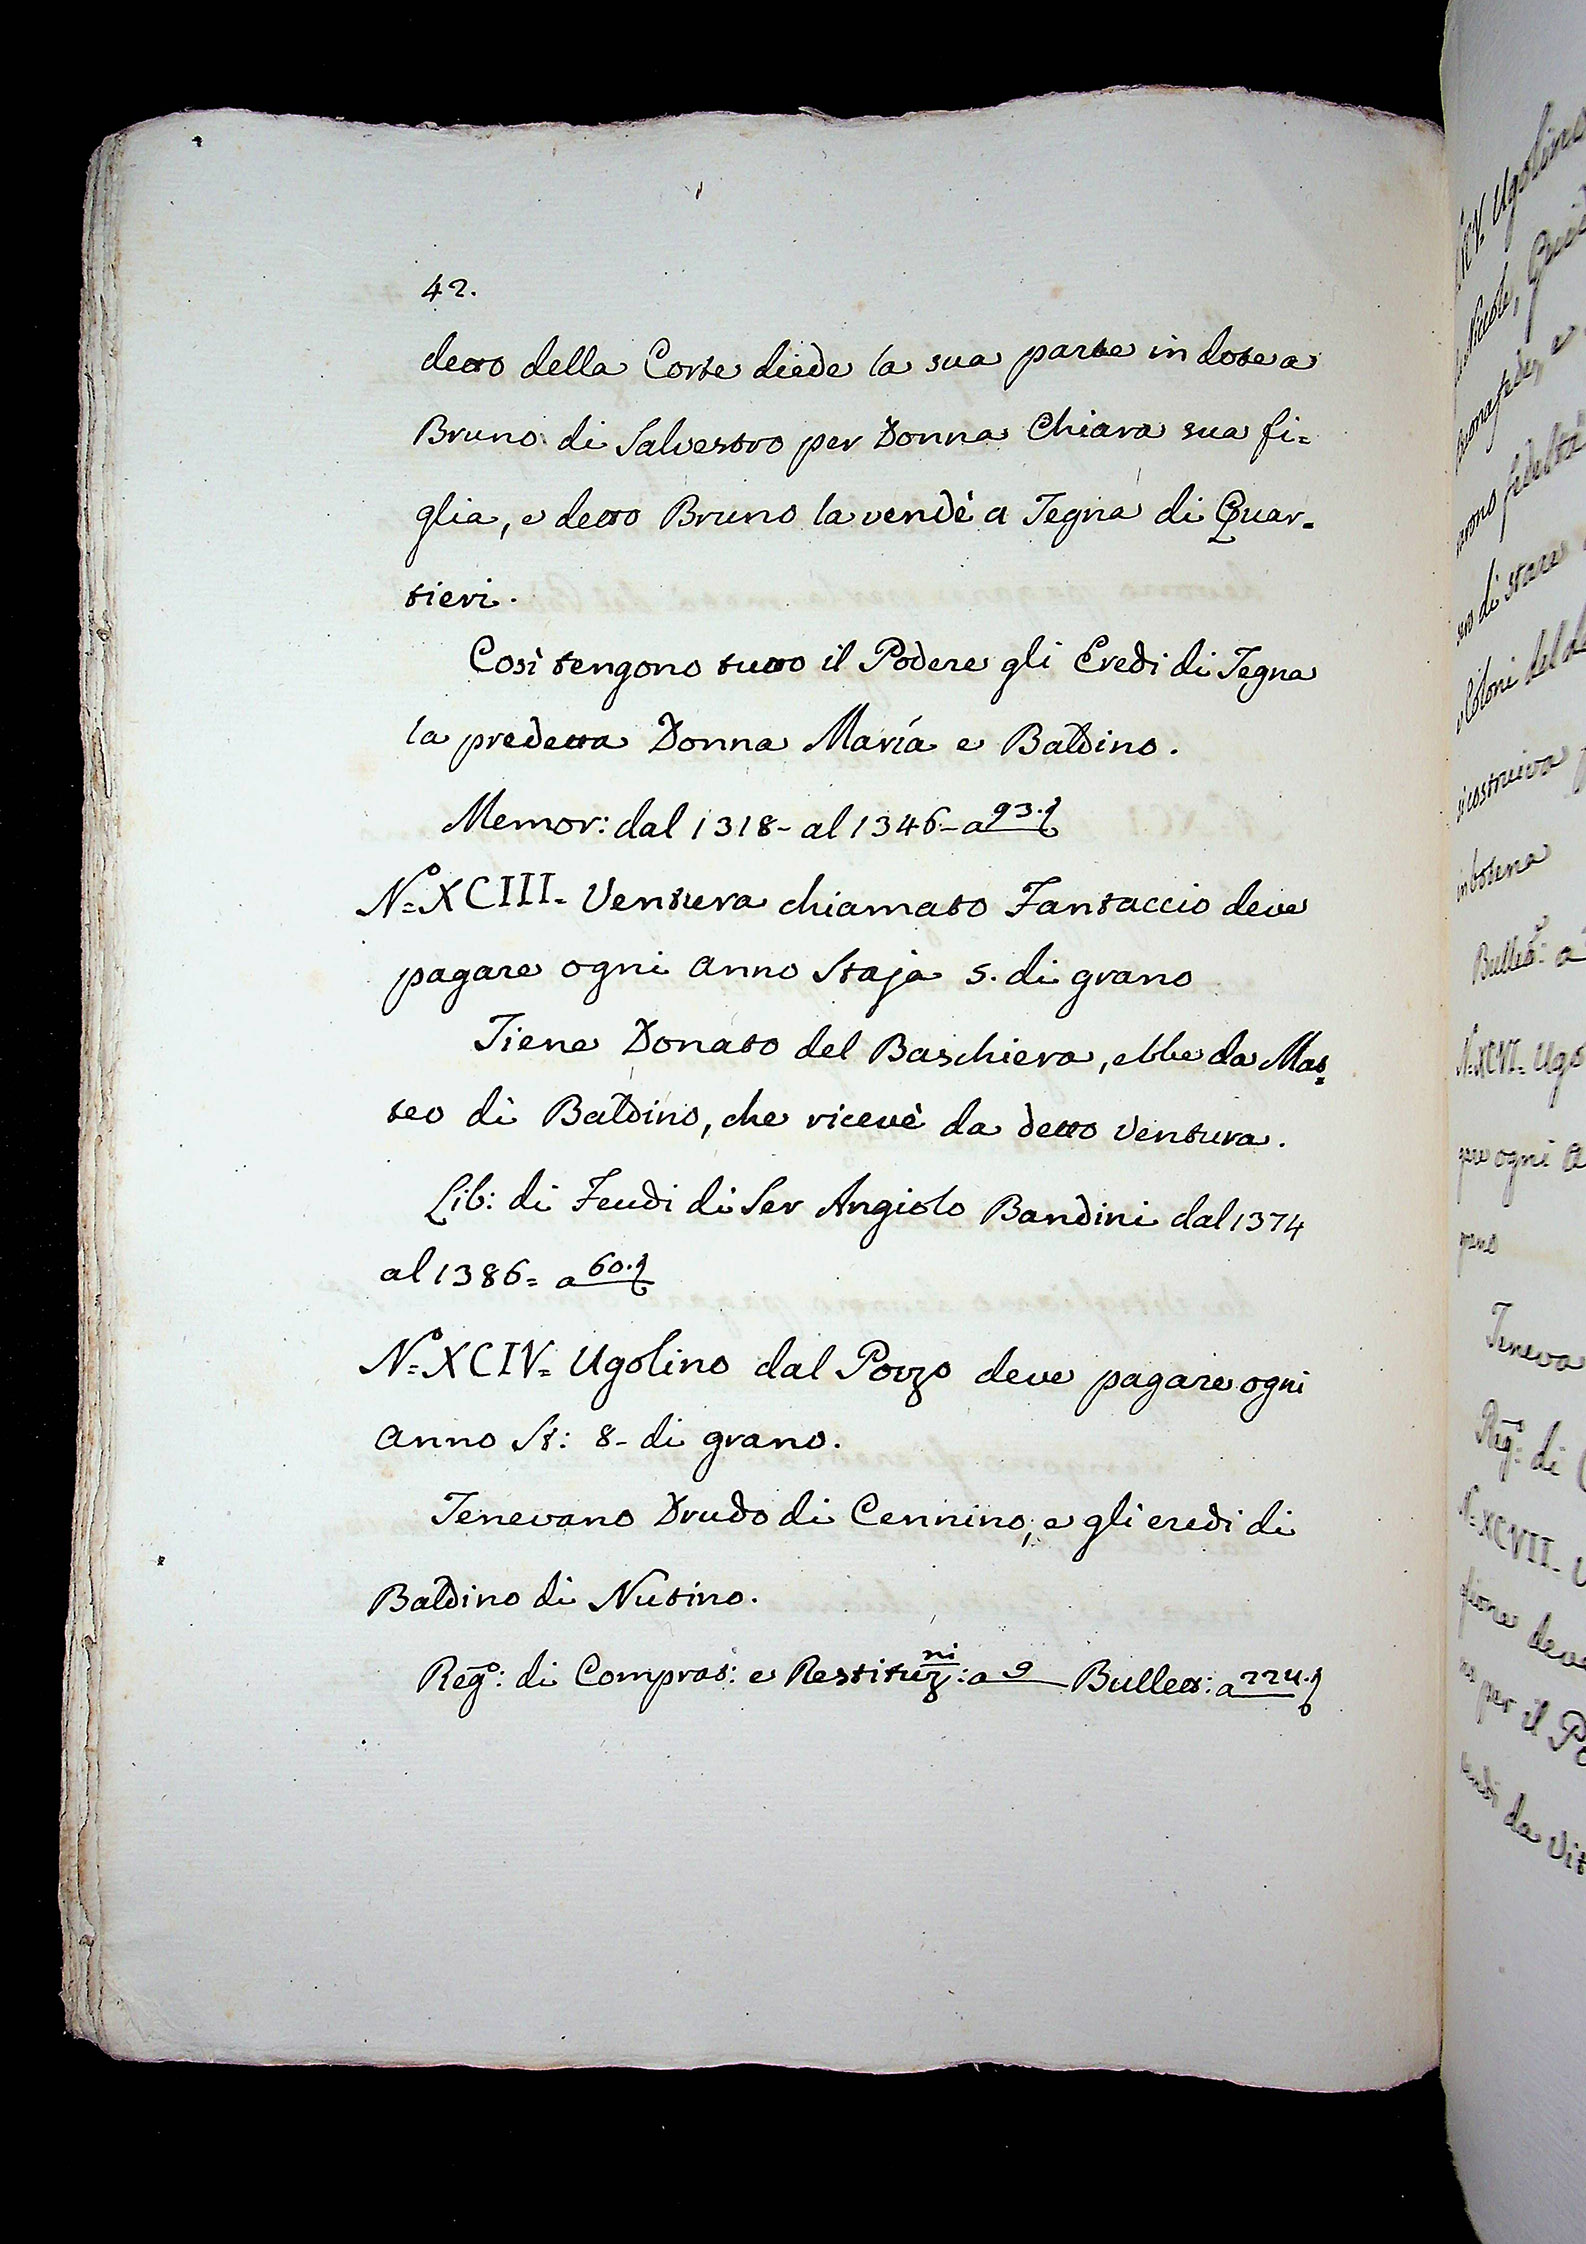 42.
detto della Corte diede la sua parte in dote a
Bruno di Salvestro per Donna Chiara sua fi=
glia, e detto Bruno la vendè a Tegna di Quar=
tieri.
Così tengono tutto il Podere gli Eredi di Tegna
la predetta Donna María e Baldino.
Memor: dal 1318- al 1346- a 93.
Nº XCIII- Ventura chiamato Fantaccio deve
pagare ogni anno Staja 5. di grano
Tiene Donato del Baschiera, ebbe da Mat=
teo di Baldino, che ricevè da detto Ventura.
Lib: di Feudi di Ser Angiolo Bandini dal 1374
al 1386= a 60.
Nº XCIV= Ugolino dal Pozzo deve pagare ogni
anno St: 8- di grano.
Tenevano Drudo di Cennino, e gli eredi di
Baldino di Nutino.
Regº: di Comprat: e Restituzni: a 9 Bullett: a 224.
Ugolino
fedeltà
di stare
inbotena
Bullett: a
Nº XCVI= Ugo
ogni a
Teneva
Regº: di
Nº XCVII-
per il
da